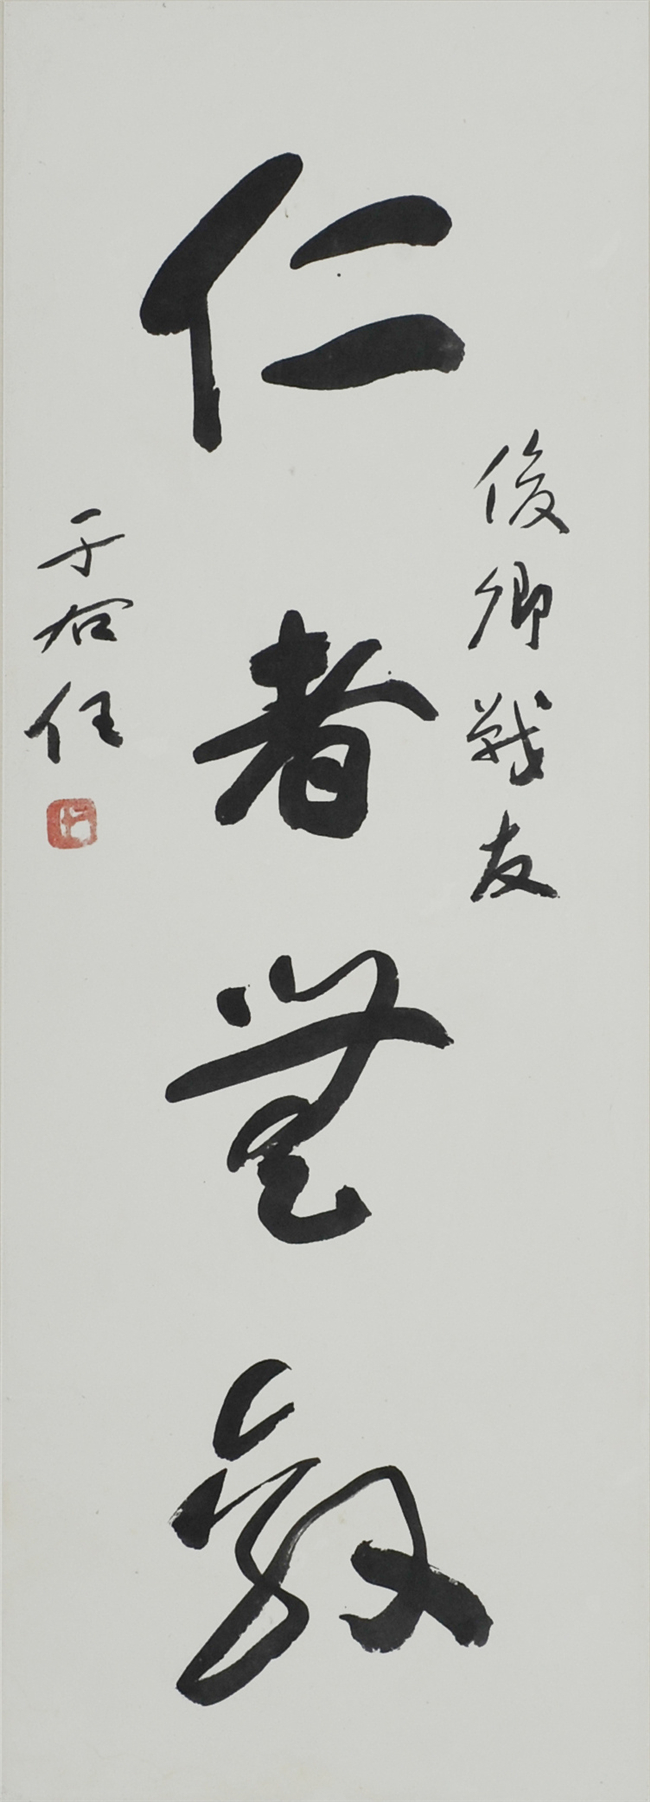 俊卿戰友
仁者無敵
于右任